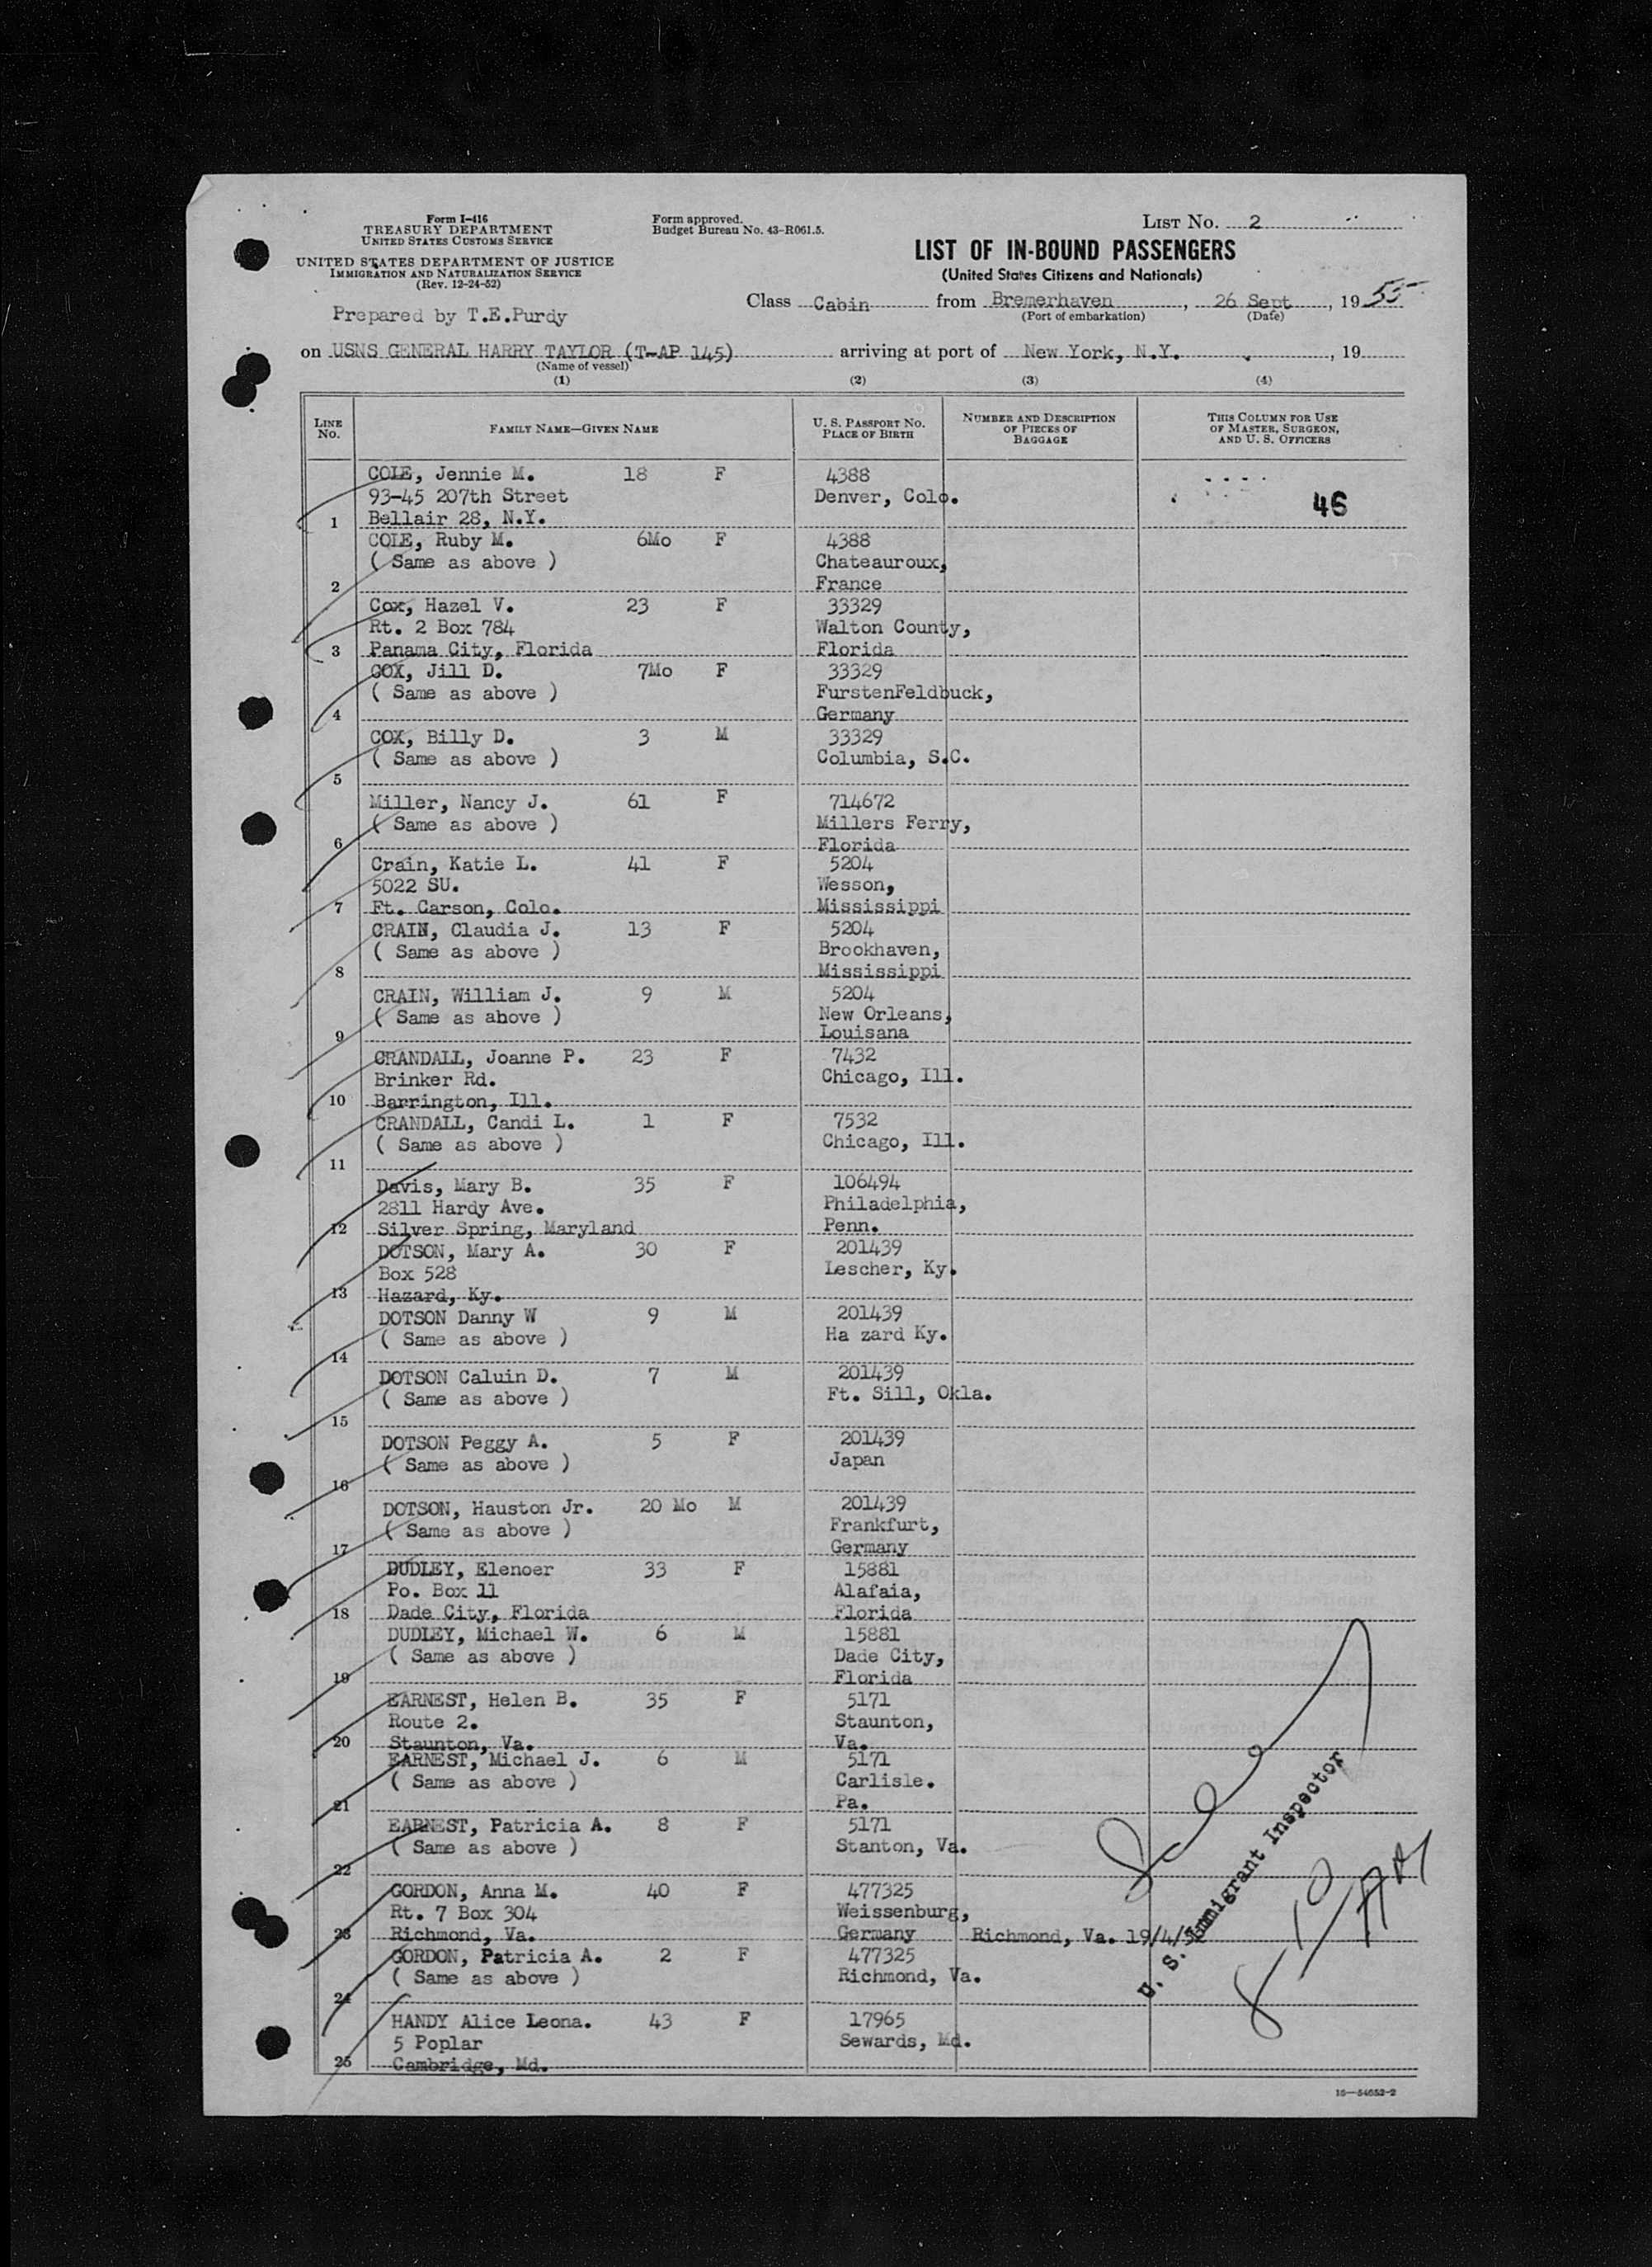 Form I-416
TREASURY DEPARTMENT
UNITED STATES CUSTOMS SERVICE
UNITED STATES DEPARTMENT OF JUSTICE
IMMIGRATION AND NATURALIZATION SERVICE
(Rev. 12-24-52)
Form approved.
Budget Bureau No. 43-R061.5.
LIST No. 2
LIST OF IN-BOUND PASSENGERS
(United States Citizens and Nationals)
Class Cabin from Bremerhaven, 26 Sept, 1955
(Port of embarkation) (Date)
Prepared by T.E.Purdy
on USNS GENERAL HARRY TAYLOR (T-AP 145) arriving at port of New York, N.Y. , 19
(Name of vessel)
(1) (2) (3) (4)
LINE No. FAMILY NAME—GIVEN NAME U. S. PASSPORT No. PLACE OF BIRTH NUMBER AND DESCRIPTION OF PIECES OF BAGGAGE THIS COLUMN FOR USE OF MASTER, SURGEON, AND U. S. OFFICERS
COLE, Jennie M. 18 F 4388
93-45 207th Street Denver, Colo. 46
1 Bellair 28, N.Y.
COLE, Ruby M. 6Mo F 4388
( Same as above ) Chateauroux,
2 France
Cox, Hazel V. 23 F 33329
Rt. 2 Box 784 Walton County,
3 Panama City, Florida Florida
COX, Jill D. 7Mo F 33329
( Same as above ) FurstenFeldbuck,
4 Germany
COX, Billy D. 3 M 33329
( Same as above ) Columbia, S.C.
5
Miller, Nancy J. 61 F 714672
( Same as above ) Millers Ferry,
6 Florida
Crain, Katie L. 41 F 5204
5022 SU. Wesson,
7 Ft. Carson, Colo. Mississippi
CRAIN, Claudia J. 13 F 5204
( Same as above ) Brookhaven,
8 Mississippi
CRAIN, William J. 9 M 5204
( Same as above ) New Orleans,
9 Louisana
CRANDALL, Joanne P. 23 F 7432
Brinker Rd. Chicago, Ill.
10 Barrington, Ill.
CRANDALL, Candi L. 1 F 7532
( Same as above ) Chicago, Ill.
11
Davis, Mary B. 35 F 106494
2811 Hardy Ave. Philadelphia,
12 Silver Spring, Maryland Penn.
DOTSON, Mary A. 30 F 201439
Box 528 Lescher, Ky.
13 Hazard, Ky.
DOTSON Danny W 9 M 201439
( Same as above ) Ha zard Ky.
14
DOTSON Caluin D. 7 M 201439
( Same as above ) Ft. Sill, Okla.
15
DOTSON Peggy A. 5 F 201439
( Same as above ) Japan
16
DOTSON, Hauston Jr. 20 Mo M 201439
( Same as above ) Frankfurt,
17 Germany
DUDLEY, Elenoer 33 F 15881
Po. Box 11 Alafaia,
18 Dade City, Florida Florida
DUDLEY, Michael W. 6 M 15881
( Same as above ) Dade City,
19 Florida
EARNEST, Helen B. 35 F 5171
Route 2. Staunton,
20 Staunton, Va. Va.
EARNEST, Michael J. 6 M 5171
( Same as above ) Carlisle.
21 Pa.
EARNEST, Patricia A. 8 F 5171
( Same as above ) Stanton, Va.
22
GORDON, Anna M. 40 F 477325
Rt. 7 Box 304 Weissenburg,
23 Richmond, Va. Germany Richmond, Va. 19/4/
GORDON, Patricia A. 2 F 477325
( Same as above ) Richmond, Va.
24
HANDY Alice Leona. 43 F 17965
5 Poplar Sewards, Md.
25 Cambridge, Md.
U. S. Immigrant Inspector
16—54652-2